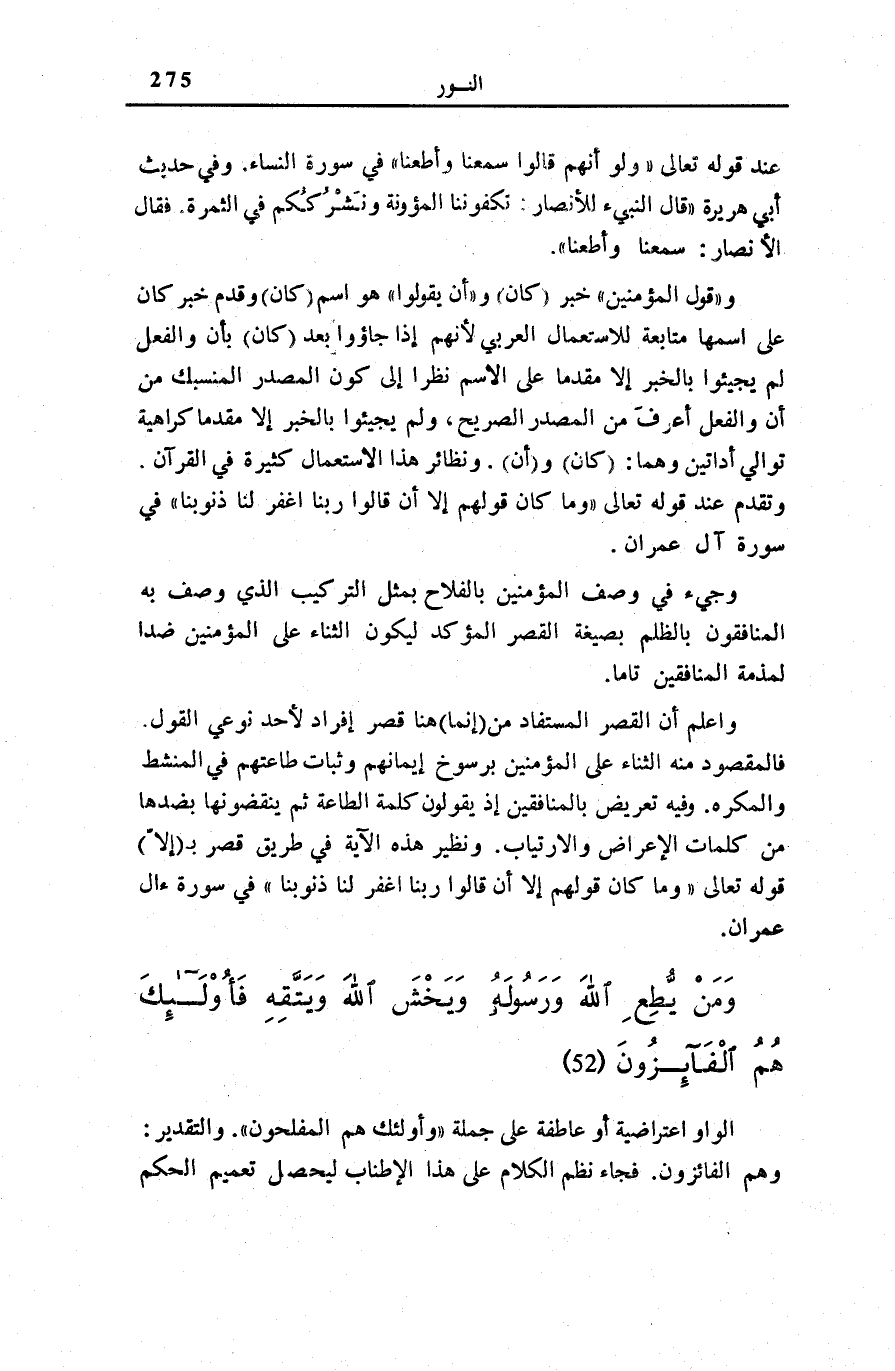 275
النــور
عند قوله تعالى « ولو أنهم قالوا سمعنا وأطعنا» في سورة النساء. وفي حديث
أبي هريرة «قال النبيء للأنصار : تكفوننا المؤونة ونَشْرُكُكُم في الثمرة. فقال
الأنصار : سمعنا وأطعنا».
و«قول المؤمنين» خبر (كان) و«أن يقولوا» هو اسم (كان) وقدم خبر كان
على اسمها متابعة للاستعمال العربي لأنهم إذا جاؤوا بعد (كان) بأن والفعل
لم يجيئوا بالخبر إلا مقدما على الاسم نظرا إلى كون المصدر المنسبك من
أن والفعل أعرفَ من المصدر الصريح، ولم يجيئوا بالخبر إلا مقدما كراهية
توالي أداتين وهما: (كان) و(أن) . ونظائر هذا الاستعمال كثيرة في القرآن .
وتقدم عند قوله تعالى «وما كان قولهم إلا أن قالوا ربنا اغفر لنا ذنوبنا» في
سورة آل عمران .
وجيء في وصف المؤمنين بالفلاح بمثل التركيب الذي وصف به
المنافقون بالظلم بصيغة القصر المؤكد ليكون الثناء على المؤمنين ضدا
لمذمة المنافقين تاما.
واعلم أن القصر المستفاد من (إنما) هنا قصر إفراد لأحد نوعي القول.
فالمقصود منه الثناء على المؤمنين برسوخ إيمانهم وثبات طاعتهم في المنشط
والمكره. وفيه تعريض بالمنافقين إذ يقولون كلمة الطاعة ثم ينقضونها بضدها
من كلمات الإعراض والارتياب. ونظير هذه الآية في طريق قصر بـ(إلاّ)
قوله تعالى « وما كان قولهم إلا أن قالوا ربنا اغفر لنا ذنوبنا » في سورة ءال
عمران.
وَمَنْ يُّطِعِ ٱللَّهَ وَرَسُولَهُۥ وَيَخْشَ ٱللَّهَ وَيَتَّقِهِۦ فَأُوْلَـٰٓئِكَ
هُمُ ٱلْفَآئِـزُونَ (52)
الواو اعتراضية أو عاطفة على جملة «وأولئك هم المفلحون». والتقدير :
وهم الفائزون. فجاء نظم الكلام على هذا الإطناب ليحصل تعميم الحكم